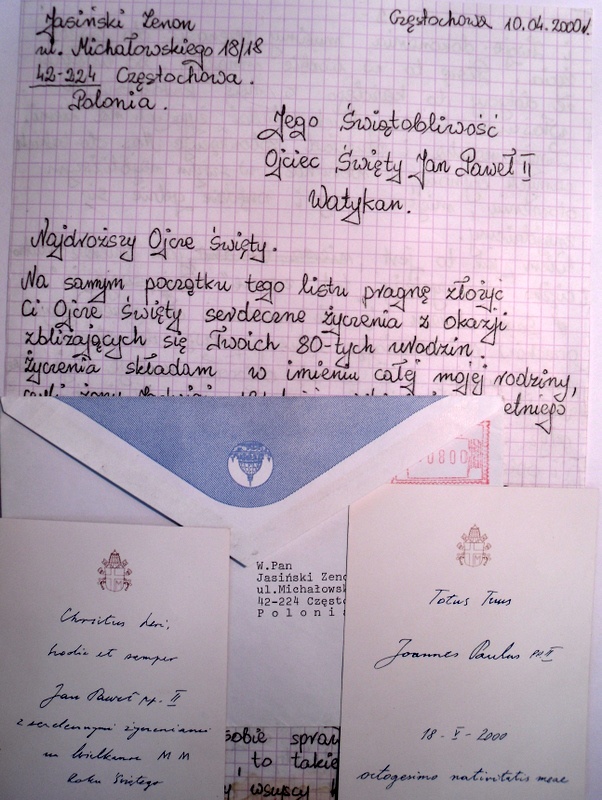 Jasiński Zenon
Częstochowa 10.04.2000r.
ul. Michałowskiego 18/18
42-224 Częstochowa.
Polonia.
Jego Świątobliwość
Ojciec Święty Jan Paweł II
Watykan.
Najdroższy Ojcze święty.
Na samym początku tego listu pragnę złożyć
Ci Ojcze święty serdeczne życzenia z okazji
zbliżających się Twoich 80-tych urodzin.
Życzenia składam w imieniu całej mojej rodziny,
etniego
0080
W.Pan
Jasiński Zeno
ul.Michałowsk
42-224 Często
Poloni
Christus heri,
hodie et semper
Jan Paweł pp. II
z serdecznymi życzeniami
na Wielkanoc MM
Roku Świętego
Totus Tuus
Joannes Paulus PP II
18-V-2000
octogesimo nativitatis meae
sobie spraw
to takie
wszyscy